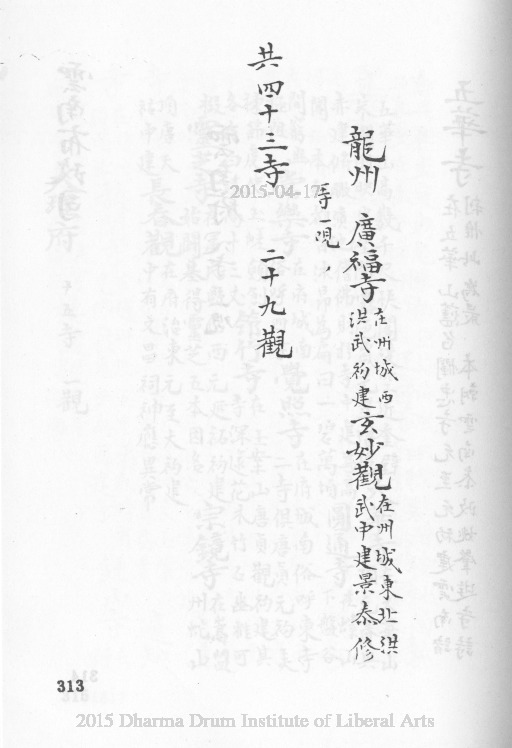 龍州 廣福寺 在州城西洪武初建 玄妙觀 在州城東北洪武中建景泰修
寺一
共四十三寺 二十九觀
2015-04-17
313
2015 Dharma Drum Institute of Liberal Arts